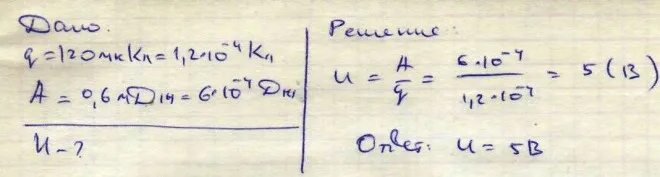 Дано:
q = 120 мкКл = 1,2·10⁻⁴ Кл
A = 0,6 мДж = 6·10⁻⁴ Дж
U - ?
Решение:
U = A/q = 6·10⁻⁴/1,2·10⁻⁴ = 5 (В)
Ответ: U = 5В